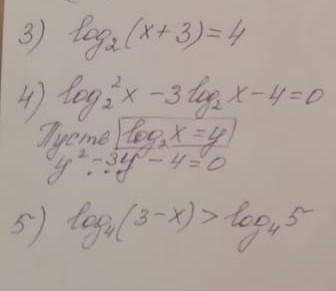 3) log₂(x+3)=4
4) log₂²x -3log₂x -4=0
Пусть log₂x=y
y² -3y -4=0
5) log₄(3-x)>log₄5